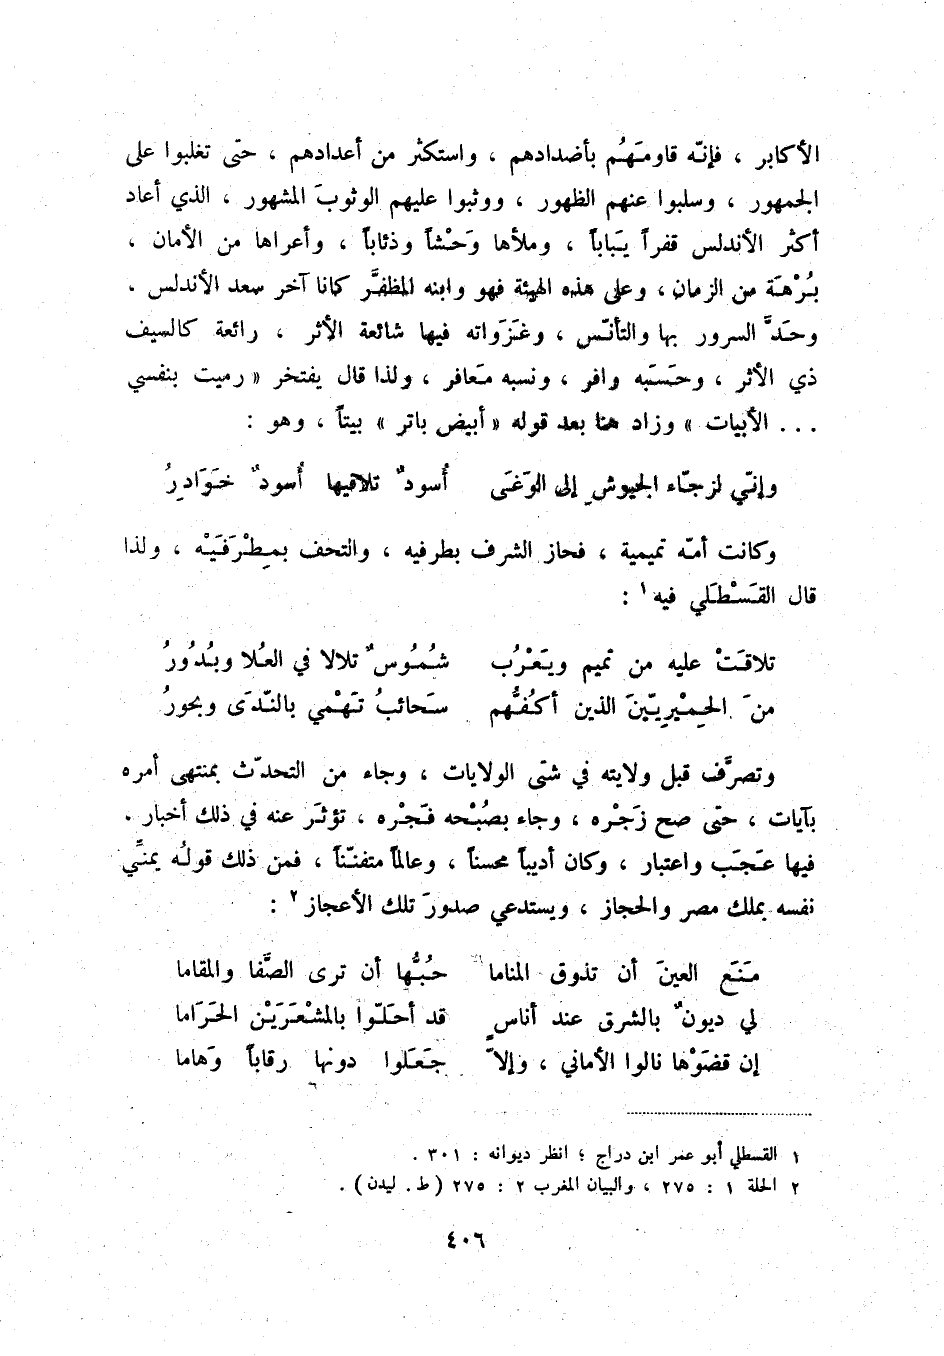 الأكابر ، فإنّه قاومَهُم بأضدادهم ، واستكثر من أعدادهم ، حتى تغلبوا على
الجمهور ، وسلبوا عنهم الظهور ، ووثبوا عليهم الوثوبَ المشهور ، الذي أعاد
أكثر الأندلس قفراً يَبَاباً ، وملأها وَحْشاً وذئاباً ، وأعراها من الأمان ،
بُرْهَة من الزمان ، وعلى هذه الهيئة فهو وابنه المظفَّر كانا آخر سعد الأندلس .
وحَدَّ السرور بها والتأنّس ، وغَزَواته فيها شائعة الأثر ، رائعة كالسيف
ذي الأثر ، وحَسَبه وافر ، ونسبه مَعافر ، ولذا قال يفتخر « رميت بنفسي
... الأبيات » وزاد هنا بعد قوله « أبيض باتر » بيتاً ، وهو :
وإنّي لزجّاء الجيوشِ إلى الوَغَى أُسودٌ تلاقيها أُسودٌ خَوَادِرُ
وكانت أمّه تميمية ، فحاز الشرف بطرفيه ، والتحف بمِطْرَفَيْه ، ولذا
قال القَسْطَلي فيه١ :
تلاقَتْ عليه من تميم ويَعْرُب شُمُوسٌ تلالا في العُلا وبُدُورُ
منَ الحِمْيِريّينَ الذين أكُفُّهم سَحائبُ تَهْمي بالنّدَى وبحورُ
وتصرَّف قبل ولايته في شتّى الولايات ، وجاء من التحدّث بمنتهى أمره
بآيات ، حتّى صح زَجْره ، وجاء بصُبْحه فَجْره ، تؤثَر عنه في ذلك أخبار .
فيها عَجَب واعتبار ، وكان أديباً محسناً ، وعالماً متفنّناً ، فمن ذلك قولُه يمنّي
نفسه بملك مصر والحجاز ، ويستدعي صدورَ تلك الأعجاز٢ :
مَنَع العينَ أن تذوق المناما حُبُّها أن ترى الصَّفا والمقاما
لي ديونٌ بالشرق عند أناسٍ قد أحَلّوا بالمشْعَرَيْن الحَرَاما
إن قضَوْها نالوا الأماني ، وإلاّ جَعَلوا دونها رقاباً وَهاما
١ القسطلي أبو عمر ابن دراج ؛ انظر ديوانه : ٣٠١ .
٢ الحلة ١ : ٢٧٥ ، والبيان المغرب ٢ : ٢٧٥ ( ط . ليدن ) .
٤٠٦